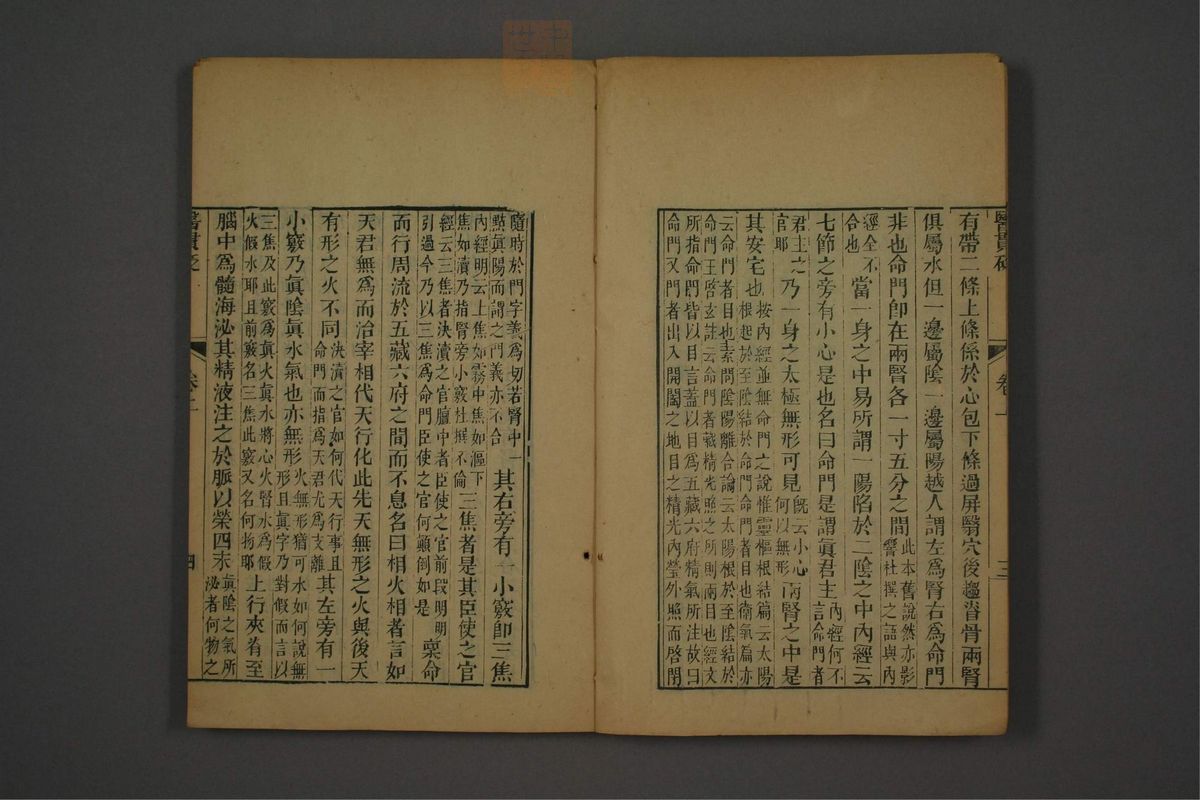 有帶二條上條係於心包下條過屏翳穴後趨脊骨兩腎
俱屬水但一邊屬陰一邊屬陽越人謂左爲腎右爲命門
非也命門卽在兩腎各一寸五分之間此本舊說然亦影
響杜撰之語與內
經全不
合也當一身之中易所謂一陽陷於二陰之中內經云
七節之旁有小心是也名曰命門是謂眞君主內經何不
言命門者
君主之
官耶乃一身之太極無形可見旣云小心
何以無形兩腎之中是
其安宅也按內經並無命門之說惟靈樞根結篇云太陽
根起於至陰結於命門命門者目也衛氣篇亦
云命門者目也素問陰陽離合論云太陽根於至陰結於
命門王啓玄註云命門者藏精光照之所則兩目也經文
所指命門皆以目言蓋以目爲五藏六府精氣所注故曰
命門又門者出入開闔之地目之精光內瑩外照而啓閉
醫貫砭
卷上
三
隨時於門字義爲切若腎中一
點眞陽而謂之門義亦不合其右旁有一小竅卽三焦
內經明云上焦如霧中焦如漚下
焦如瀆乃指腎旁小竅杜撰不倫三焦者是其臣使之官
經云三焦者決瀆之官膻中者臣使之官前段明明
引過今乃以三焦爲命門臣使之官何顚倒如是稟命
而行周流於五藏六府之間而不息名曰相火相者言如
天君無爲而治宰相代天行化此先天無形之火與後天
有形之火不同決瀆之官如何代天行事且
命門而指爲天君尤爲支離其左旁有一
小竅乃眞陰眞水氣也亦無形火無形猶可水如何說無
形且眞字乃對假而言以
三焦及此竅爲眞火眞水將心火腎水爲假
火假水耶且前竅名三焦此竅又名何物耶上行夾脊至
腦中爲髓海泌其精液注之於脈以榮四末眞陰之氣所
泌者何物之
四